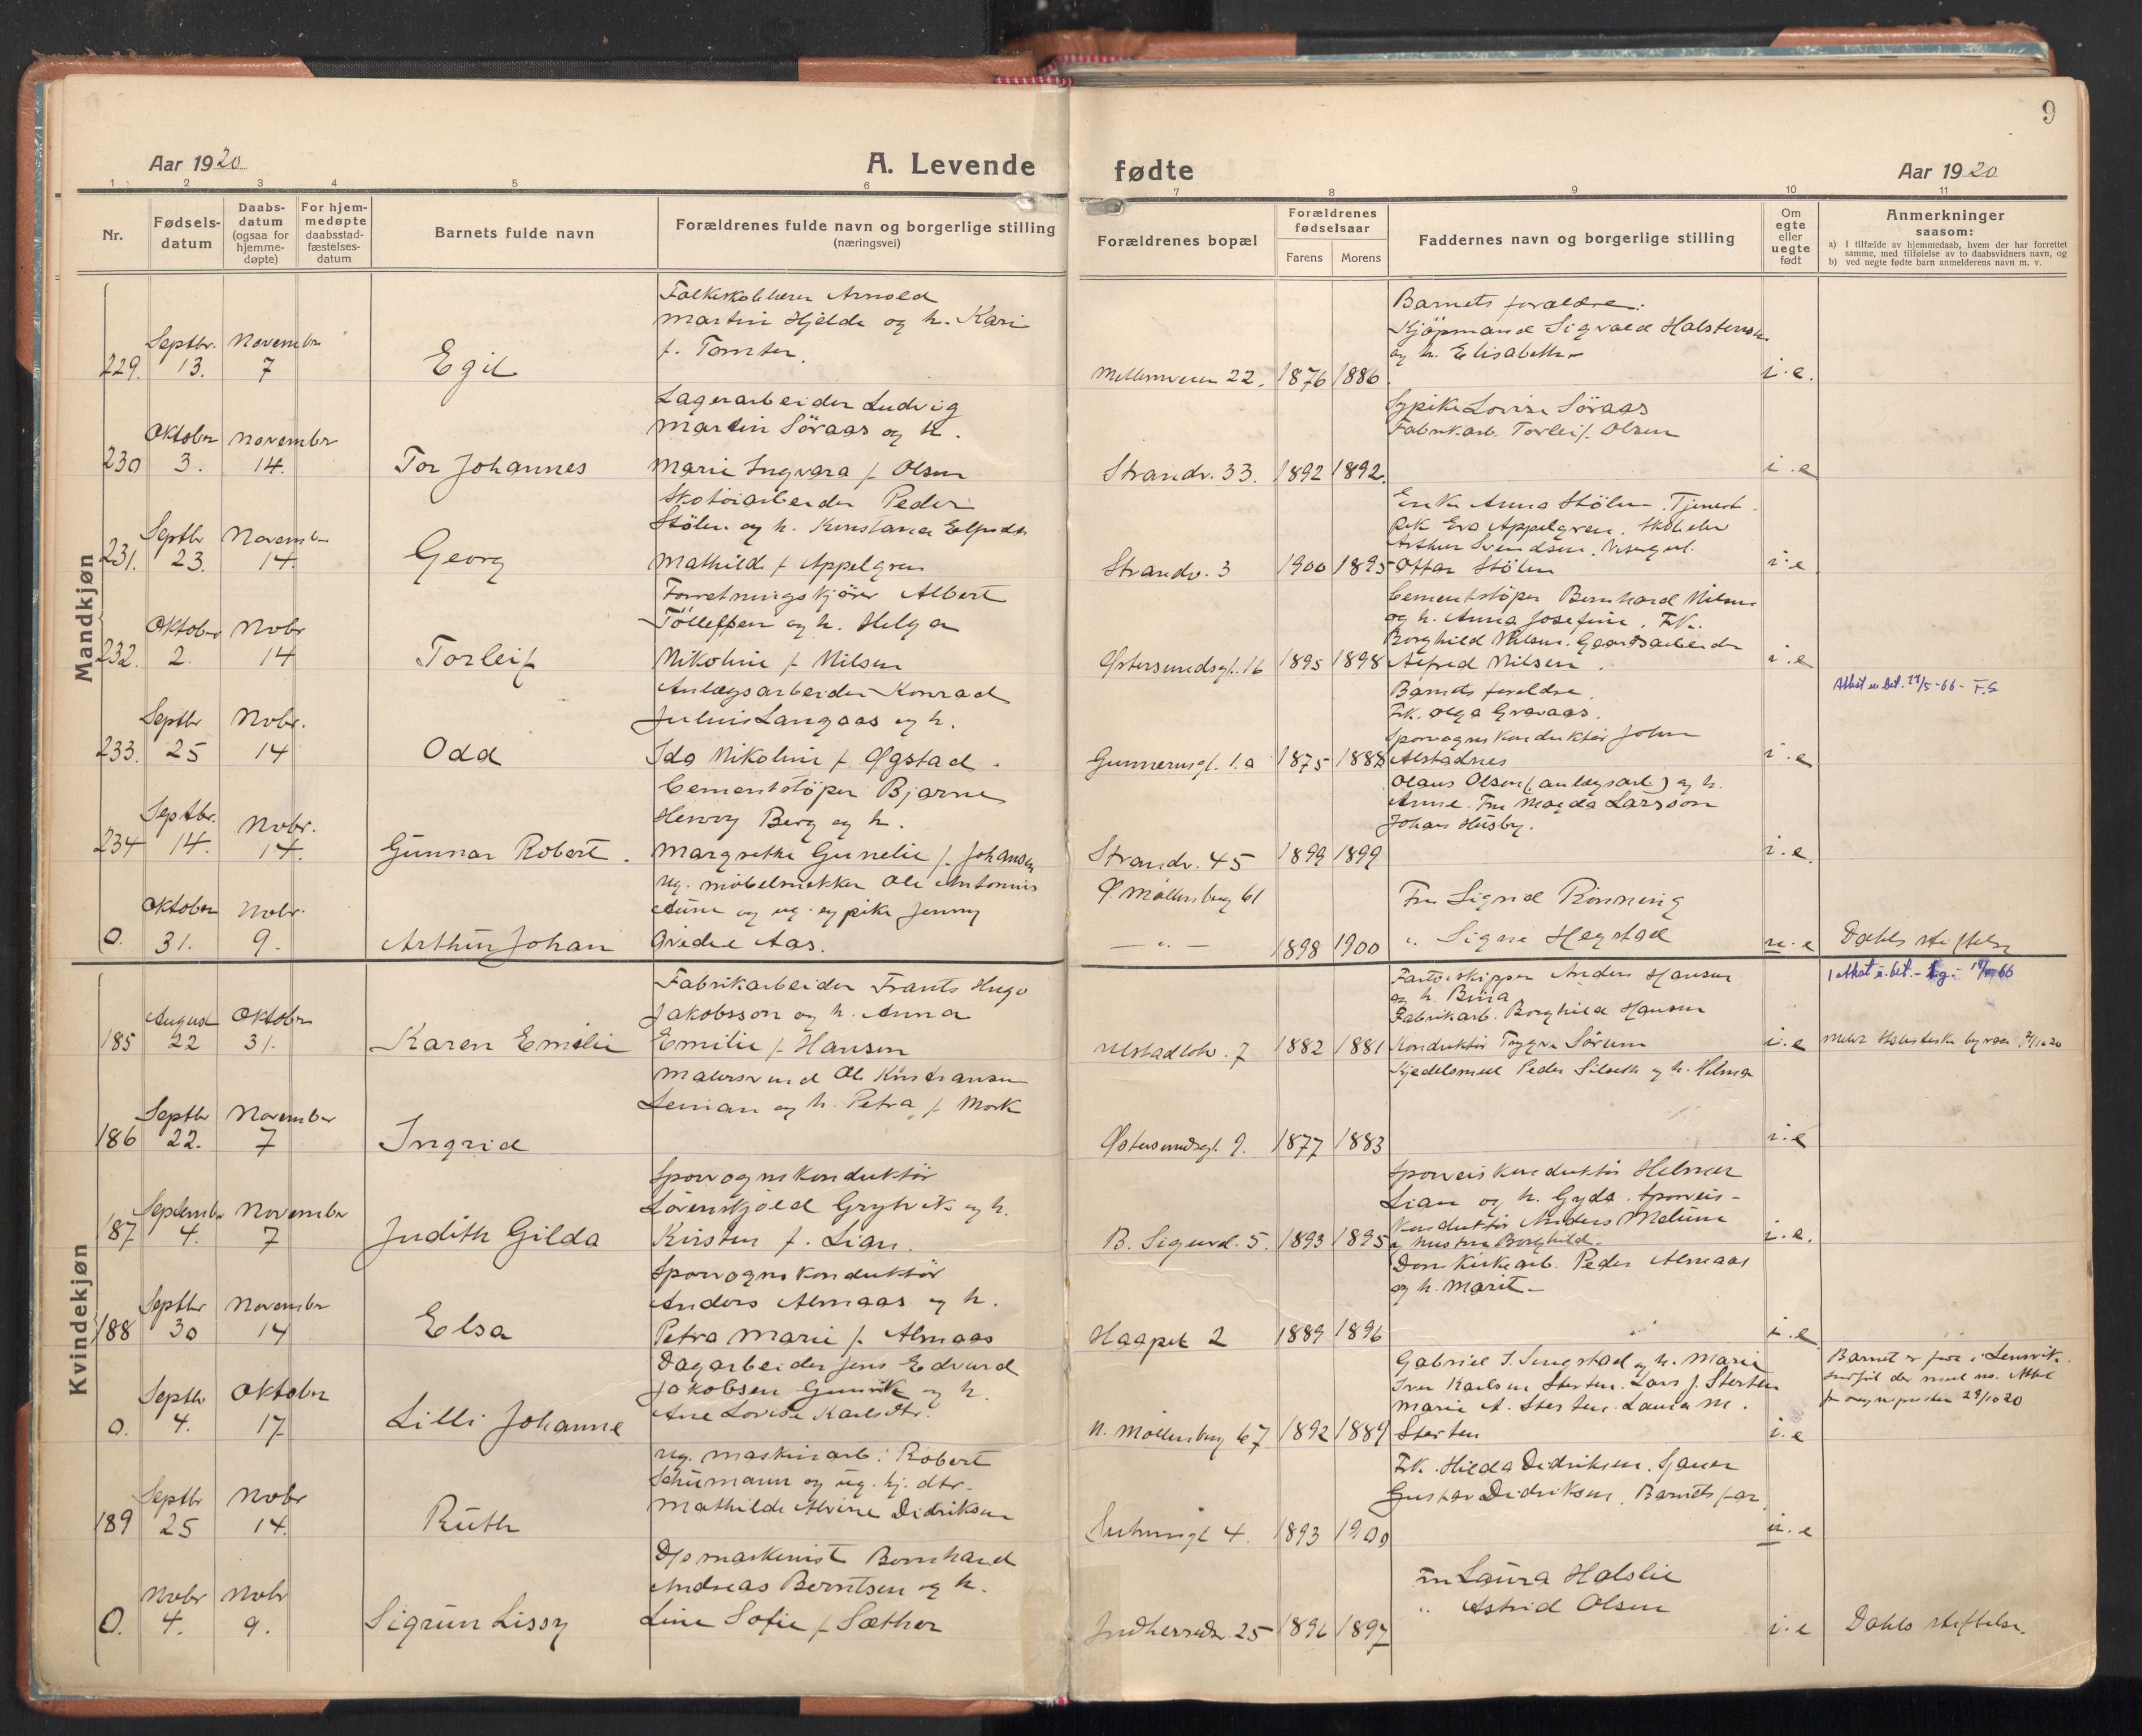 9
Aar 1920
A. Levende
fødte
Aar 1920
1 2 3 4 5 6 7 8 9 10 11
Nr.
Fødsels-
datum
Daabs-
datum
(ogsaa for
hjemme-
døpte)
For hjem-
medøpte
daabsstad-
fæstelses-
datum
Barnets fulde navn
Forældrenes fulde navn og borgerlige stilling
(næringsvei)
Forældrenes bopæl
Forældrenes
fødselsaar
Farens Morens
Faddernes navn og borgerlige stilling
Om
egte
eller
uegte
født
Anmerkninger
saasom:
a) I tilfælde av hjemmedaab, hvem der har forrettet
samme, med tilføielse av to daabsvidners navn, og
b) ved uegte fødte barn anmelderens navn m. v.
Mandkjøn
229. Septbr. 13. November 7
Egil
Arnold
Martin Hjelde og h. Kari
f. Tomter.
22. 1876 1886
Barnets forældre.
Kjøpmand Sigvald Halstensen
og h. Elisabeth
i.e.
230 Oktober 3. November 14.
Tor Johannes
Lagerarbeider Ludvig
Martin Söraas og h.
Marie Ingvara f. Olsen
Strandv. 33. 1892 1892.
Sypike Lovise Söraas
Fabrikarb. Torleif Olsen
i.e
231. Septbr 23. November 14.
Georg
Skotöiarbeider Peder
Stölen og h. Konstance
Mathilde f. Appelgren
Strandv. 3 1900 1895
Enke Anna Stölen. Tjeneste
pik Eva Appelgren.
Arthur Svendsen.
Ottar Stölen
i.e
232. Oktober 2. Nobr 14
Torleif
Forretningskjörer Albert
Tölleffsen og h. Helga
Nikoline f. Nilsen
Østersundsgt. 16 1895 1898
Cementstöper Bernhard Nilsen
og h. Anna Josefine. Frk.
Borghild Nilsen. Gaardsarbeider
Alfred Nilsen.
i.e
233. Septbr 25 Nobr. 14
Odd
Anlægsarbeider Konrad
Julius Langaas og h.
Ida Nikoline f. Øgstad.
Gunnerusgt. 1.a 1875 1888
Barnets forældre.
Frk. Olga Gravaas.
Sporvognskonduktör John
Alstadnes
i.e
- 66 - F.S.
234 Septbr. 14. Nobr. 14.
Gunnar Robert.
Cementstöper Bjarne
Henry Berg og h.
Margrethe Gunelie f. Johansen
Strandv. 45 1899 1899
Olaus Olsen (anlægsarb.) og h.
Anne. Fru Magda Larsson
Johan Husby.
i.e.
0. Oktober 31. Nobr. 9.
Arthur Johan
ug. möbelsnekker Ole Antonius
Aune og ug. sypike Jenny
Aas.
Ø. Møllenberg 61
— " — 1898 1900
Fru Sigrid Rönning
" Signe Hegstad
u.e
Dahls stiftelse
Kvindekjøn
185 August 22 Oktober 31.
Karen Emilie
Fabrikarbeider Frants Hugo
Jakobsson og h. Anna
Emilie f. Hansen
7 1882 1881
Anders Hansen
og h. Bina
Fabrikarb. Borghild Hansen
Konduktör Trygve Sörum
i.e
66
186 Septbr 22. November 7
Ingrid
Malersvend Ole Kristiansen
Leman og h. Petra f. Mork
Østersundsgt. 9. 1877 1883
Kjedelsmed Peder Silseth og h. Helma
i.e
187 September 4. November 7
Judith Gilda
Sporvognskonduktör
Lövenskjold Grytvik og h.
Kirsten f. Lian.
B. Sigurd. 5. 1893 1895
Sporveiskonduktör Helmer
Lian og h. Gyda. Sporveis-
konduktör Anders Melum
og hustru Borghild.
i.e.
188 Septbr 30 November 14
Elsa
Sporvognskonduktör
Anders Almaas og h.
Petra Marie f. Almaas
Haapet 2 1889 1896
Domkirkearb. Peder Almaas
og h. Marit.
i.e
0. Septbr 4. Oktober 17
Lilli Johanne
Dagarbeider Jens Edvard
Jakobsen Gunvik og h.
Ane Lovise Karlsdtr.
N. Møllenberg 67 1892 1889
Gabriel J. Singstad og h. Marie
Iver Karlsen Sterten. Lars J. Sterten
Marie A. Sterten. Laura M.
Sterten
i.e
Barnet er født i Lensvik.
189 Septbr 25 Nobr 14.
Ruth
ug. maskinarb. Robert
Schumann og ug. hj. dtr.
Mathilde Alvine Didriksen
4. 1893 1900
Frk. Hilda Didriksen. Sjauer
Gustav Didriksen. Barnets far.
u.e
0. Nobr 4. Nobr 9.
Sigrun Lissy
D/s maskinist Bernhard
Andreas Berntsen og h.
Line Sofie f. Sæther
Indherredsv. 25 1896 1897
Fru Laura Halslie
" Astrid Olsen
i.e
Dahls stiftelse.